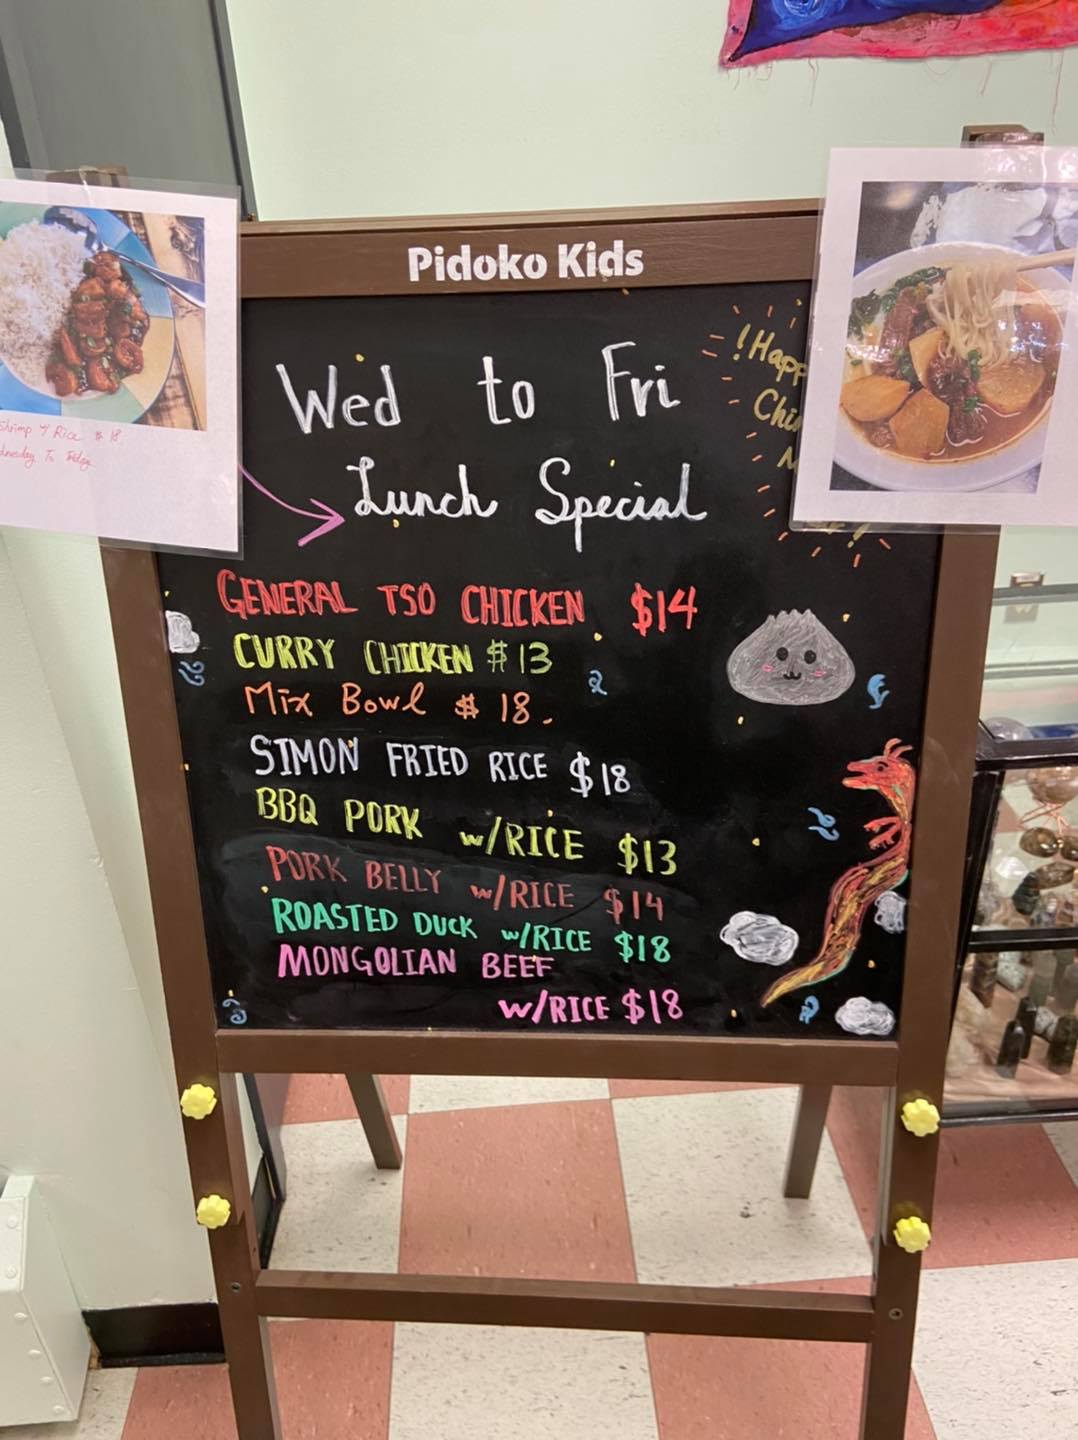 Pidoko Kids
Wed to Fri
Lunch Special
! Happ
GENERAL TSO CHICKEN $14
CURRY CHICKEN $13
Mix Bowl $18.
SIMON FRIED RICE $18
BBQ PORK w/RICE $13
PORK BELLY w/RICE $14
ROASTED DUCK w/RICE $18
MONGOLIAN BEEF
w/RICE $18
Shrimp w/ Rice $18
To Friday